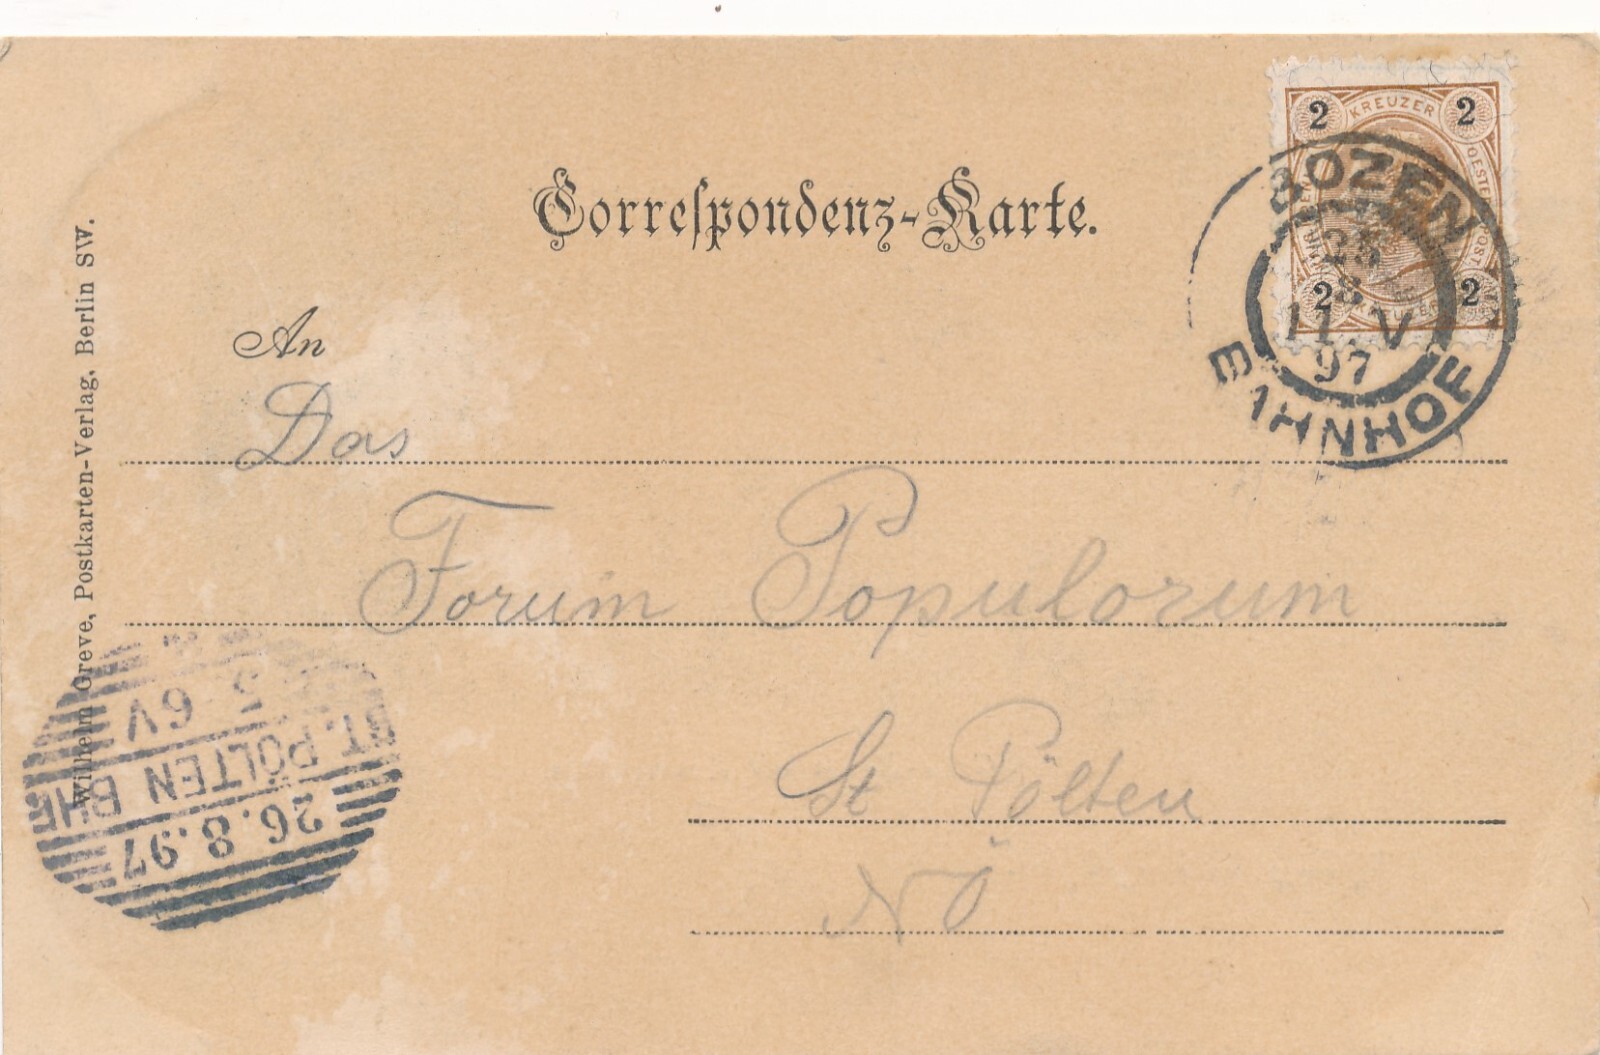 Correspondenz-Karte.
2 KREUZER 2
2 KREUZER 2
BOZEN
25
8
11.V
97
BAHNHOF
An
Das
Forum Populorum
St Pölten
NÖ
Wilhelm Greve, Postkarten-Verlag, Berlin SW.
26.8.97
ST. PÖLTEN BHF
5-6V